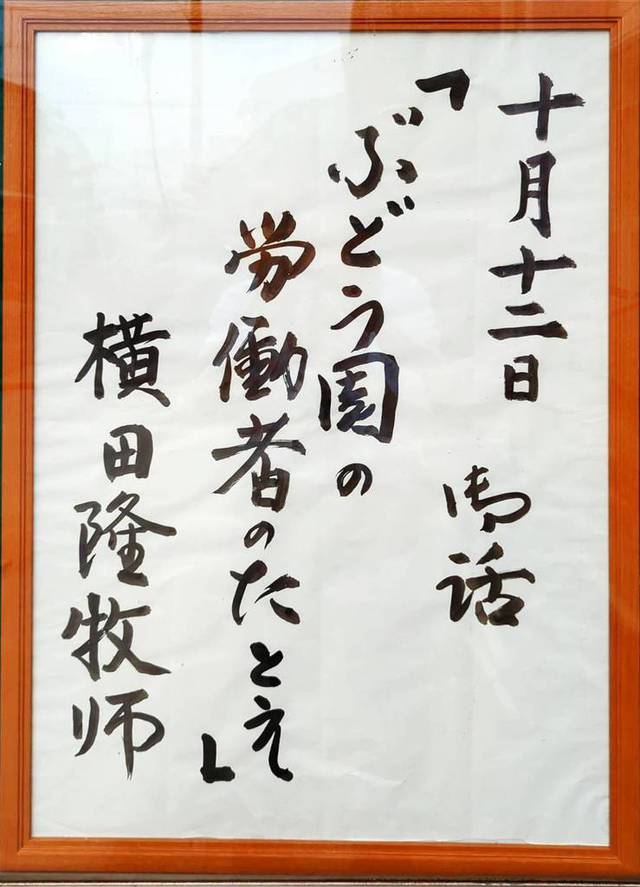 十月十二日
御話
「ぶどう園の
労働者のたとえ」
横田隆牧师